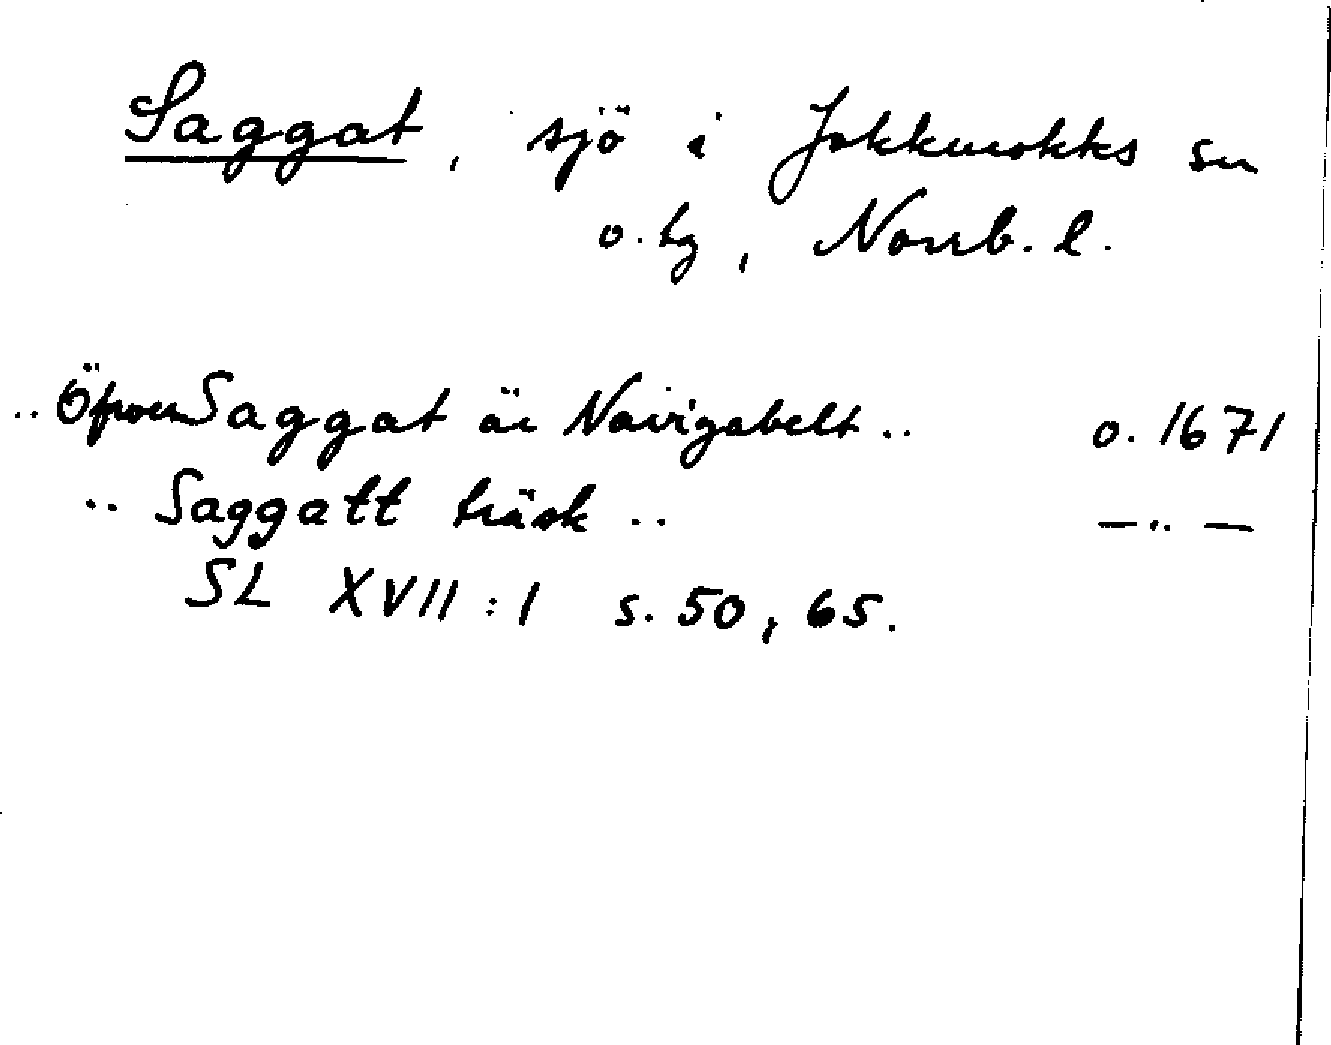 Saggat, sjö i Jokkmokks sn
o. tg, Norrb. l.
.. Öfwer Saggat är Navigabelt .. o. 1671
.. Saggatt träsk .. — .. —
SL XVII : 1 s. 50, 65.